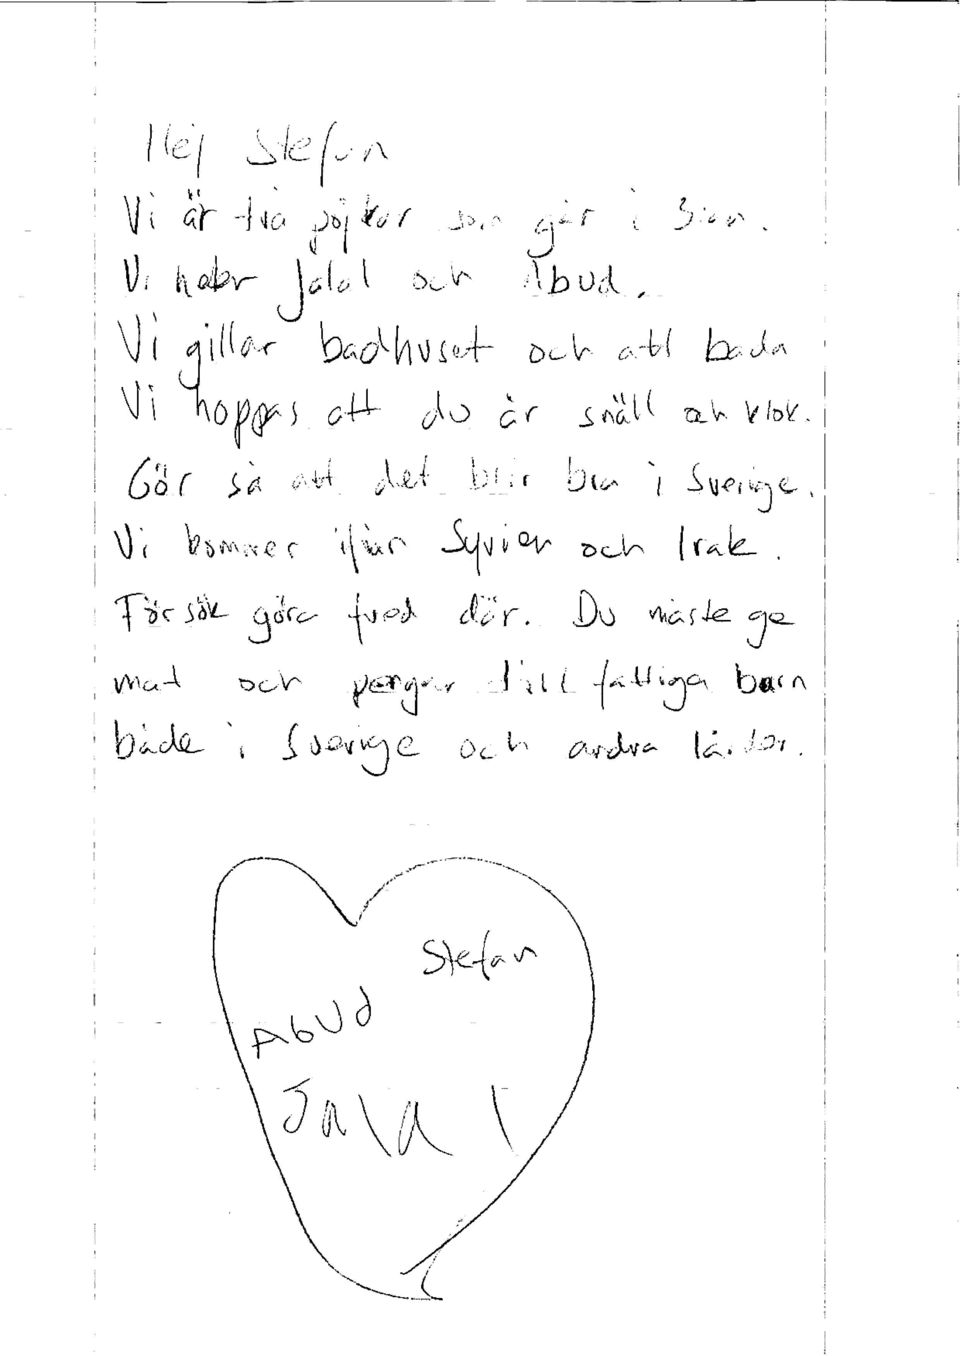 Hej Stefan
Vi är två pojkar som går i 3:an.
Vi heter Jalal och Abud.
Vi gillar badhuset och att bada
Vi hoppas att du är snäll och klok.
Gör så att det blir bra i Sverige.
Vi kommer ifrån Syrien och Irak.
Försök göra fred där. Du måste ge
mat och pengar till fattiga barn
både i Sverige och andra länder.
Stefan
Abud
Jalal